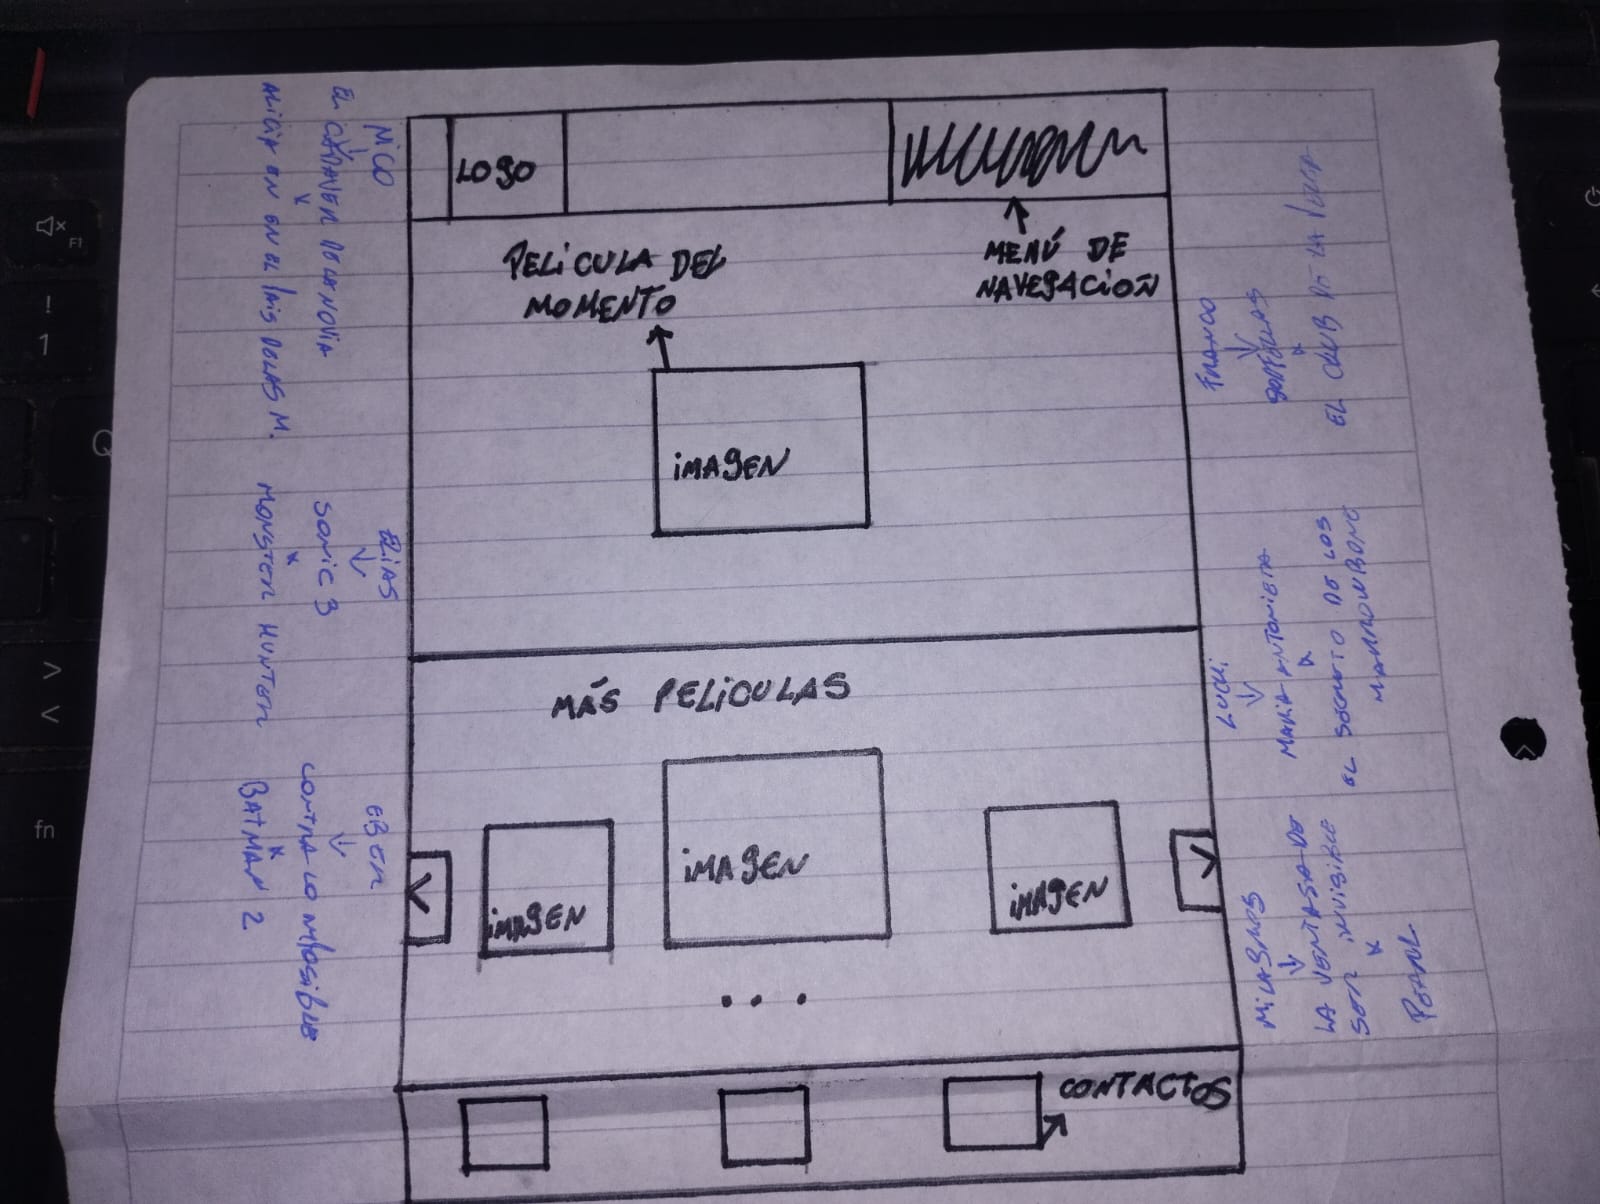 LOGO
PELICULA DEL
MOMENTO
MENÚ DE
NAVEGACION
IMAGEN
MÁS PELICULAS
IMAGEN
IMAGEN
IMAGEN
. . .
CONTACTOS
NICO
EL CADAVER DE LA NOVIA
ALICIA EN EN EL PAIS DE LAS M.
ELIAS
SONIC 3
MONSTER HUNTER
EBER
CONTRA LO IMPOSIBLE
BATMAN 2
FRANCO
EL CLUB DE LA PELEA
LUCHI
MARIA ANTONIETA
EL SECRETO DE LOS
MARROMBONE
MILAGROS
LA VENTAJA DE
SER INVISIBLE
PEARL
F1
!
1
Q
>
<
fn